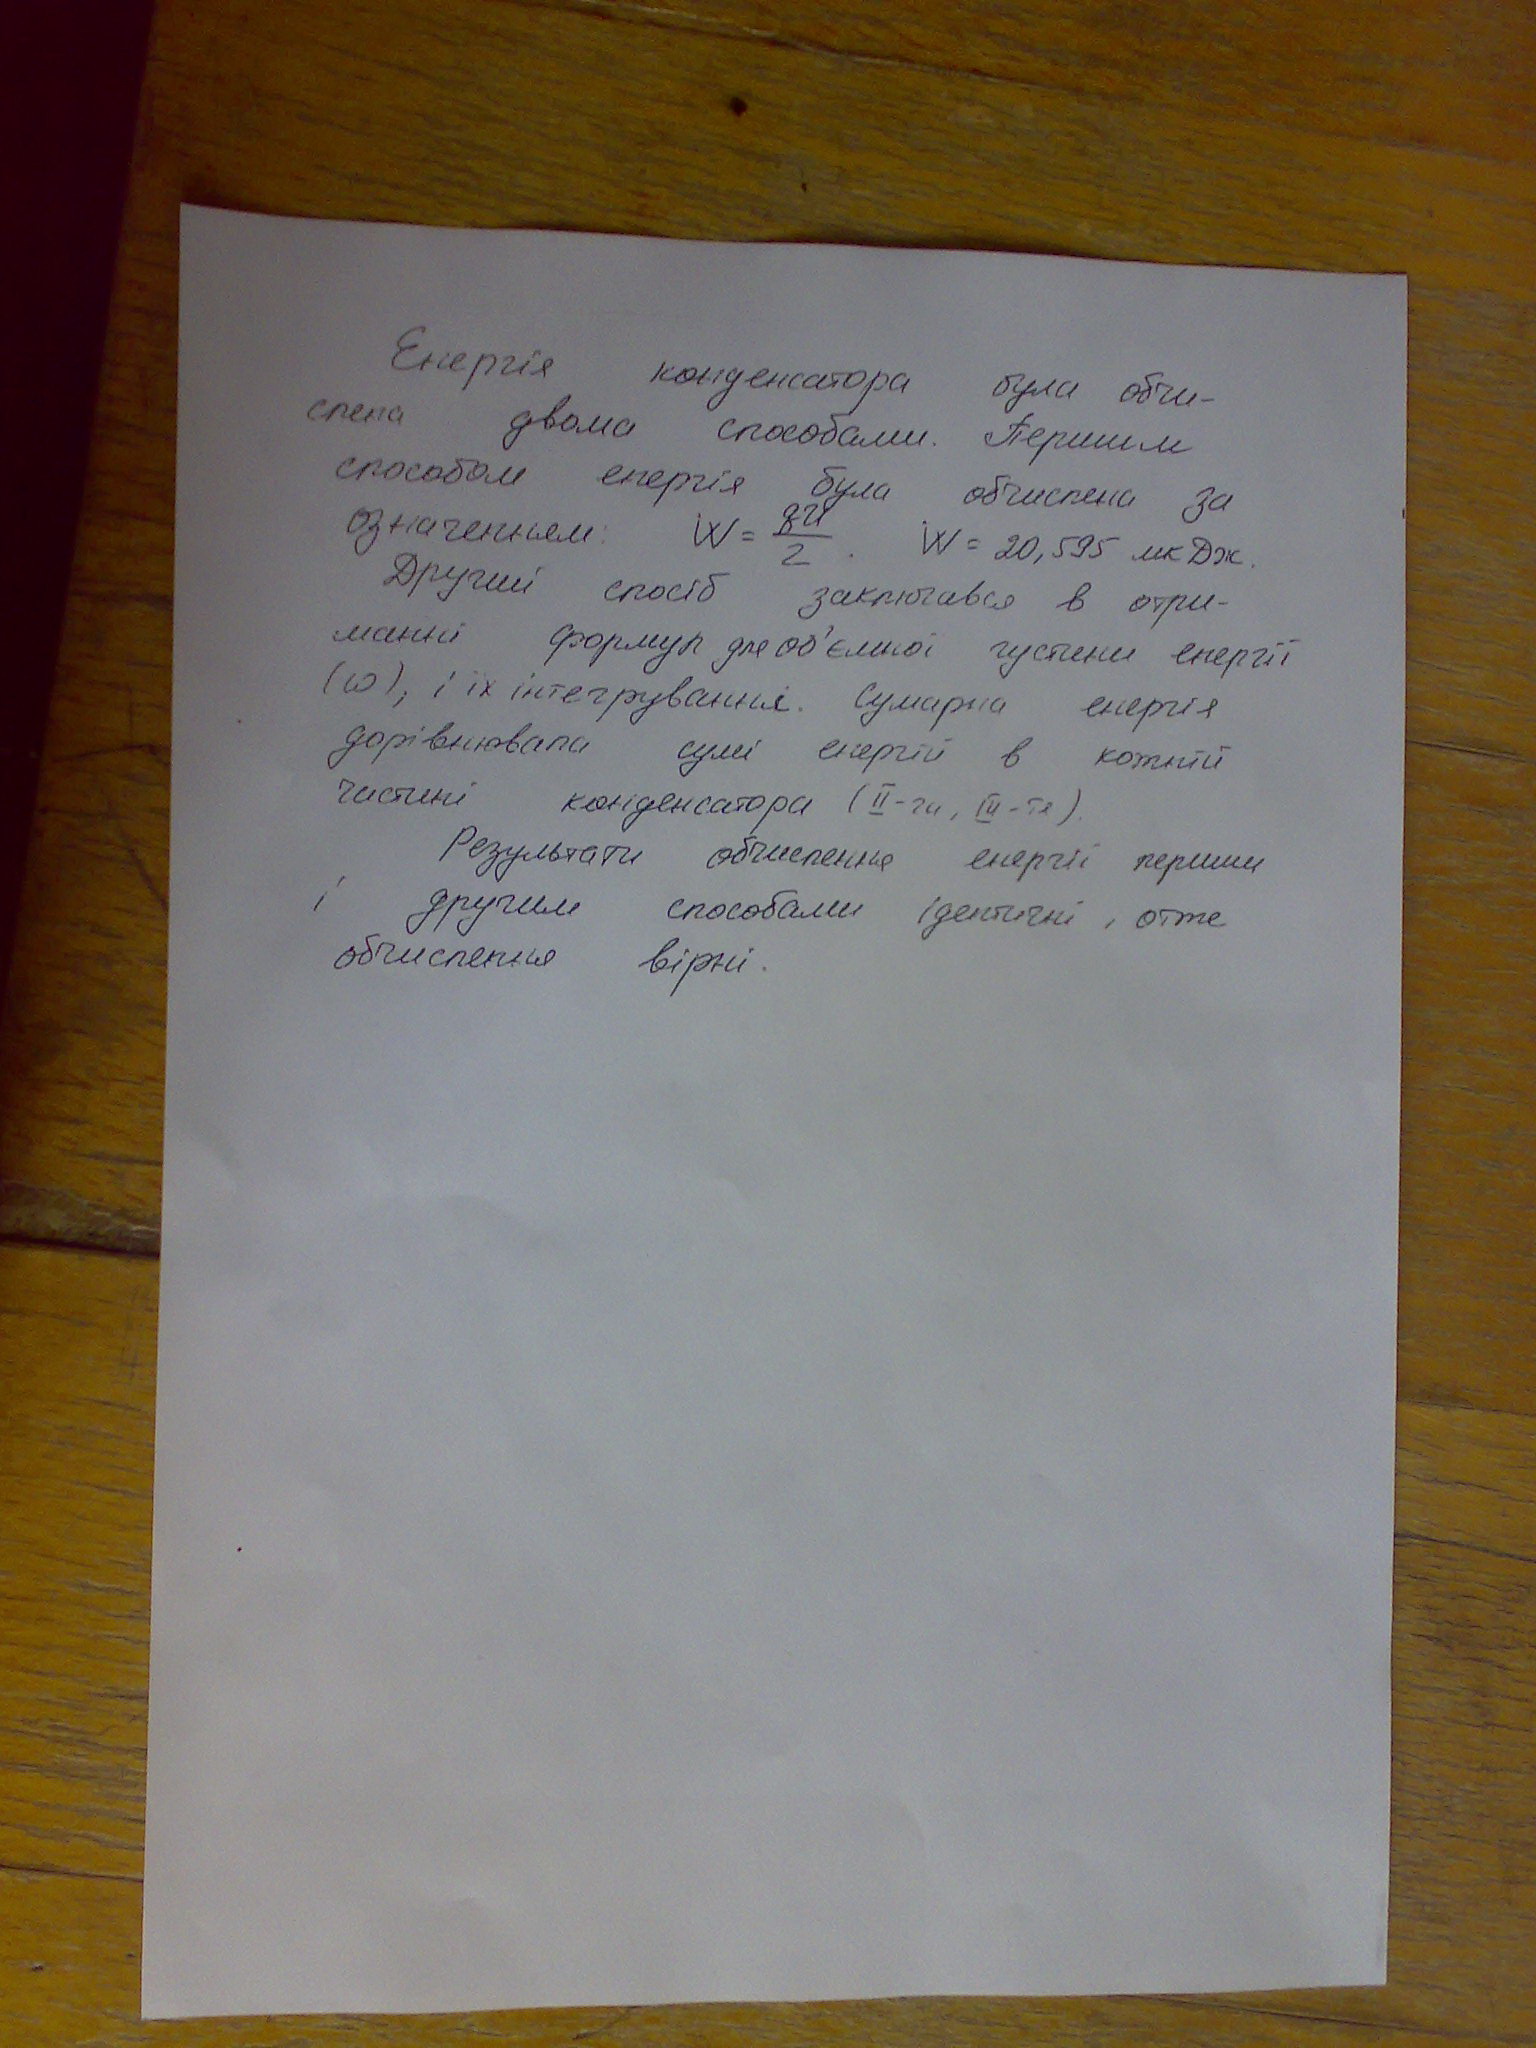 Енергія конденсатора була обчи-
слена двома способами. Першим
способом енергія була обчислена за
означенням: W = qU/2. W = 20,595 мкДж.
Другий спосіб заключався в отри-
манні формул для об'ємної густини енергії
(ω), і їх інтегрування. Сумарна енергія
дорівнювала сумі енергій в кожній
частині конденсатора (II-га, III-тя).
Результати обчислення енергії першим
і другим способами ідентичні, отже
обчислення вірні.